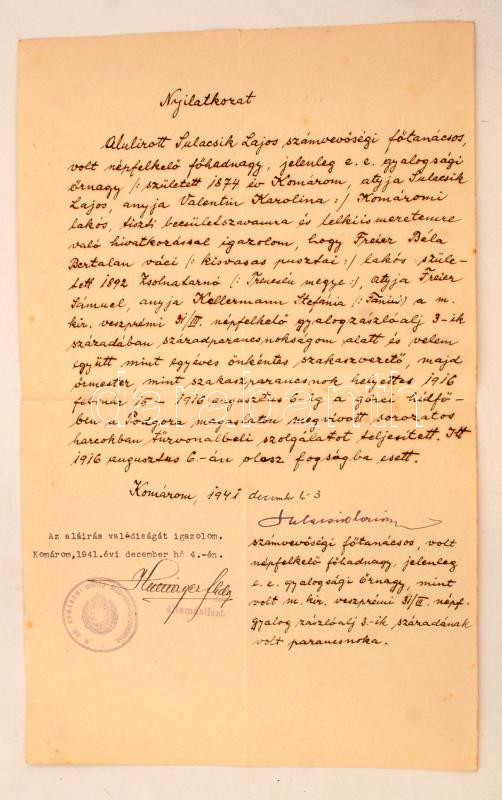 Nyilatkozat
Alulírott Sulacsik Lajos számvevőségi főtanácsos,
volt népfelkelő főhadnagy, jelenleg e. c. gyalogsági
őrnagy /: született 1874 év Komárom, atyja Sulacsik
Lajos, anyja Valentin Karolina :/ Komáromi
lakós, tiszti becsületszavamra és lelkiismeretemre
való hivatkozással igazolom, hogy Freier Béla
Bertalan váci /: kisvasas pusztai :/ lakós szüle-
tett 1892 Zsolnatarnó /: Trencsén megye :/, atyja Freier
Sámuel, anyja Kellermann Stefania /: Fánni :/ a m.
kir. veszprémi 31/III. népfelkelő gyalogzászlóalj 3-ik
századában századparancsnokságom alatt és velem
együtt mint egyéves önkéntes szakaszvezető, majd
őrmester mint szakaszparancsnok helyettes 1916
február 15 - 1916 augusztus 6-ig a görzi hídfő-
ben a Podgora magaslaton megvívott sorozatos
harcokban tűzvonalbeli szolgálatot teljesített. Itt
1916 augusztus 6.-án olasz fogságba esett.
Komárom, 1941 december hó 3
számvevőségi főtanácsos, volt
népfelkelő főhadnagy, jelenleg
e. c. gyalogsági őrnagy, mint
volt m. kir. veszprémi 31/III. népf.
gyalog zászlóalj 3.-ik századának
volt parancsnoka.
Az aláírás valódiságát igazolom.
Komárom,1941.évi december hó 4.-én.
darabanth